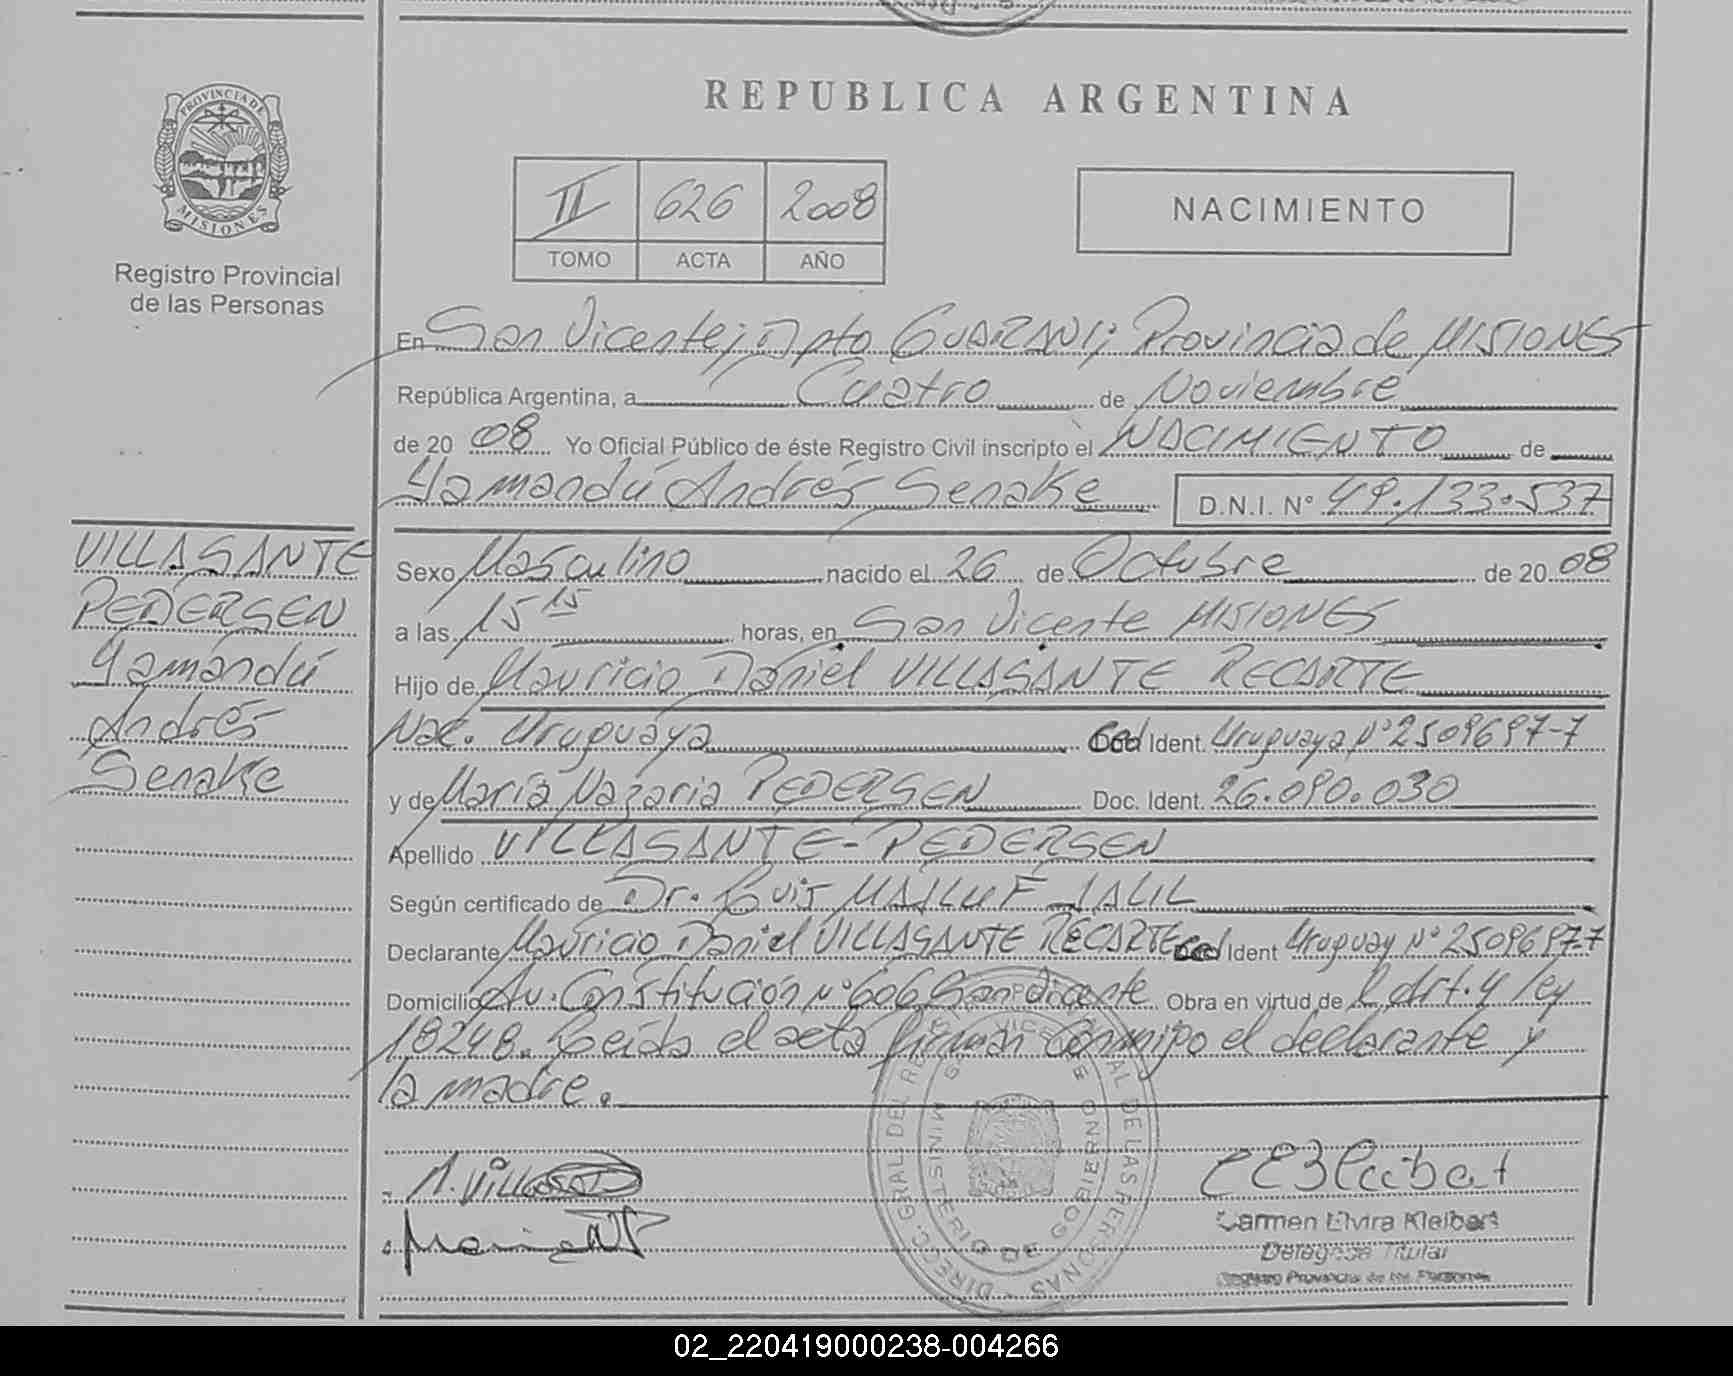 PROVINCIA DE
MISIONES
Registro Provincial
de las Personas
REPUBLICA ARGENTINA
II 626 2008
TOMO ACTA AÑO
NACIMIENTO
En San Vicente; Dpto GUARANI; Provincia de MISIONES
República Argentina, a Cuatro de Noviembre
de 20 08 Yo Oficial Público de éste Registro Civil inscripto el NACIMIENTO de
Yamandú Andrés Senake D.N.I. N° 49.133.537
VILLASANTE
PEDERSEN
Yamandú
Andrés
Senake
Sexo Masculino nacido el 26 de Octubre de 20 08
a las 15 15 horas, en San Vicente MISIONES
Hijo de Mauricio Daniel VILLASANTE RECARTE
Nac. Uruguaya Ced Ident. Uruguaya N° 2509697-7
y de María Nazaria PEDERSEN Doc. Ident. 26.090.030
Apellido VILLASANTE-PEDERSEN
Según certificado de Dr. Luis MAJLUF JALIL
Declarante Mauricio Daniel VILLASANTE RECARTE Ced Ident Uruguay N° 2509697-7
Domicilio Av. Constitución N° 606 San Vicente Obra en virtud de l art. 4 ley
18248. Leída el acta firman conmigo el declarante y
la madre.
M. Villasante
DIRECC. GRAL DEL DE LAS PERSONAS
MINISTERIO DE GOBIERNO
Carmen Elvira Kleibert
Delegada Titular
Registro Provincial de las Personas
02_220419000238-004266